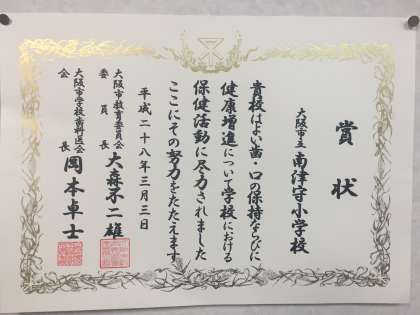 賞状
大阪市立 南津守小学校
貴校はよい歯・口の保持ならびに
健康増進について学校における
保健活動に尽力されました
ここにその努力をたたえます
平成二十八年三月三日
大阪市教育委員会
委員長 大森不二雄
大阪市学校歯科医会
会長 岡本卓士